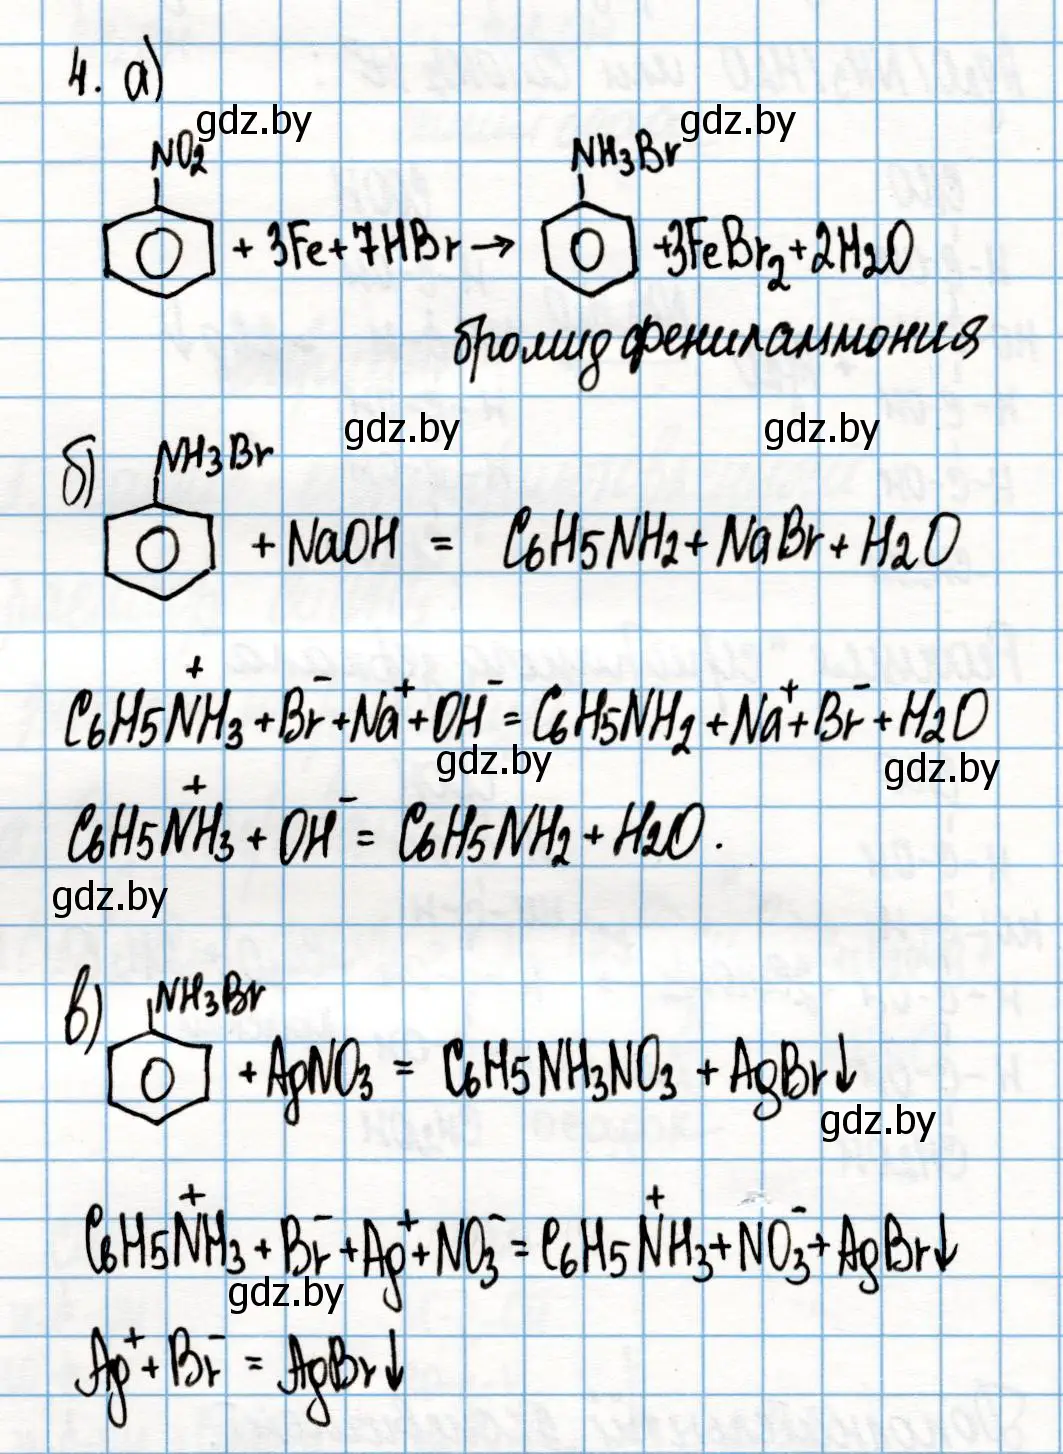 4. а)
gdz.by gdz.by
NO2 NH3Br
+ 3Fe + 7HBr → +3FeBr2 + 2H2O
бромид фениламмония
gdz.by gdz.by
б) NH3Br
+ NaOH = C6H5NH2 + NaBr + H2O
C6H5N⁺H3 + Br⁻ + Na⁺ + OH⁻ = C6H5NH2 + Na⁺ + Br⁻ + H2O
gdz.by gdz.by
C6H5N⁺H3 + OH⁻ = C6H5NH2 + H2O.
gdz.by
в) NH3Br
+ AgNO3 = C6H5NH3NO3 + AgBr↓
gdz.by
C6H5N⁺H3 + Br⁻ + Ag⁺ + NO3⁻ = C6H5N⁺H3 + NO3⁻ + AgBr↓
gdz.by
Ag⁺ + Br⁻ = AgBr↓